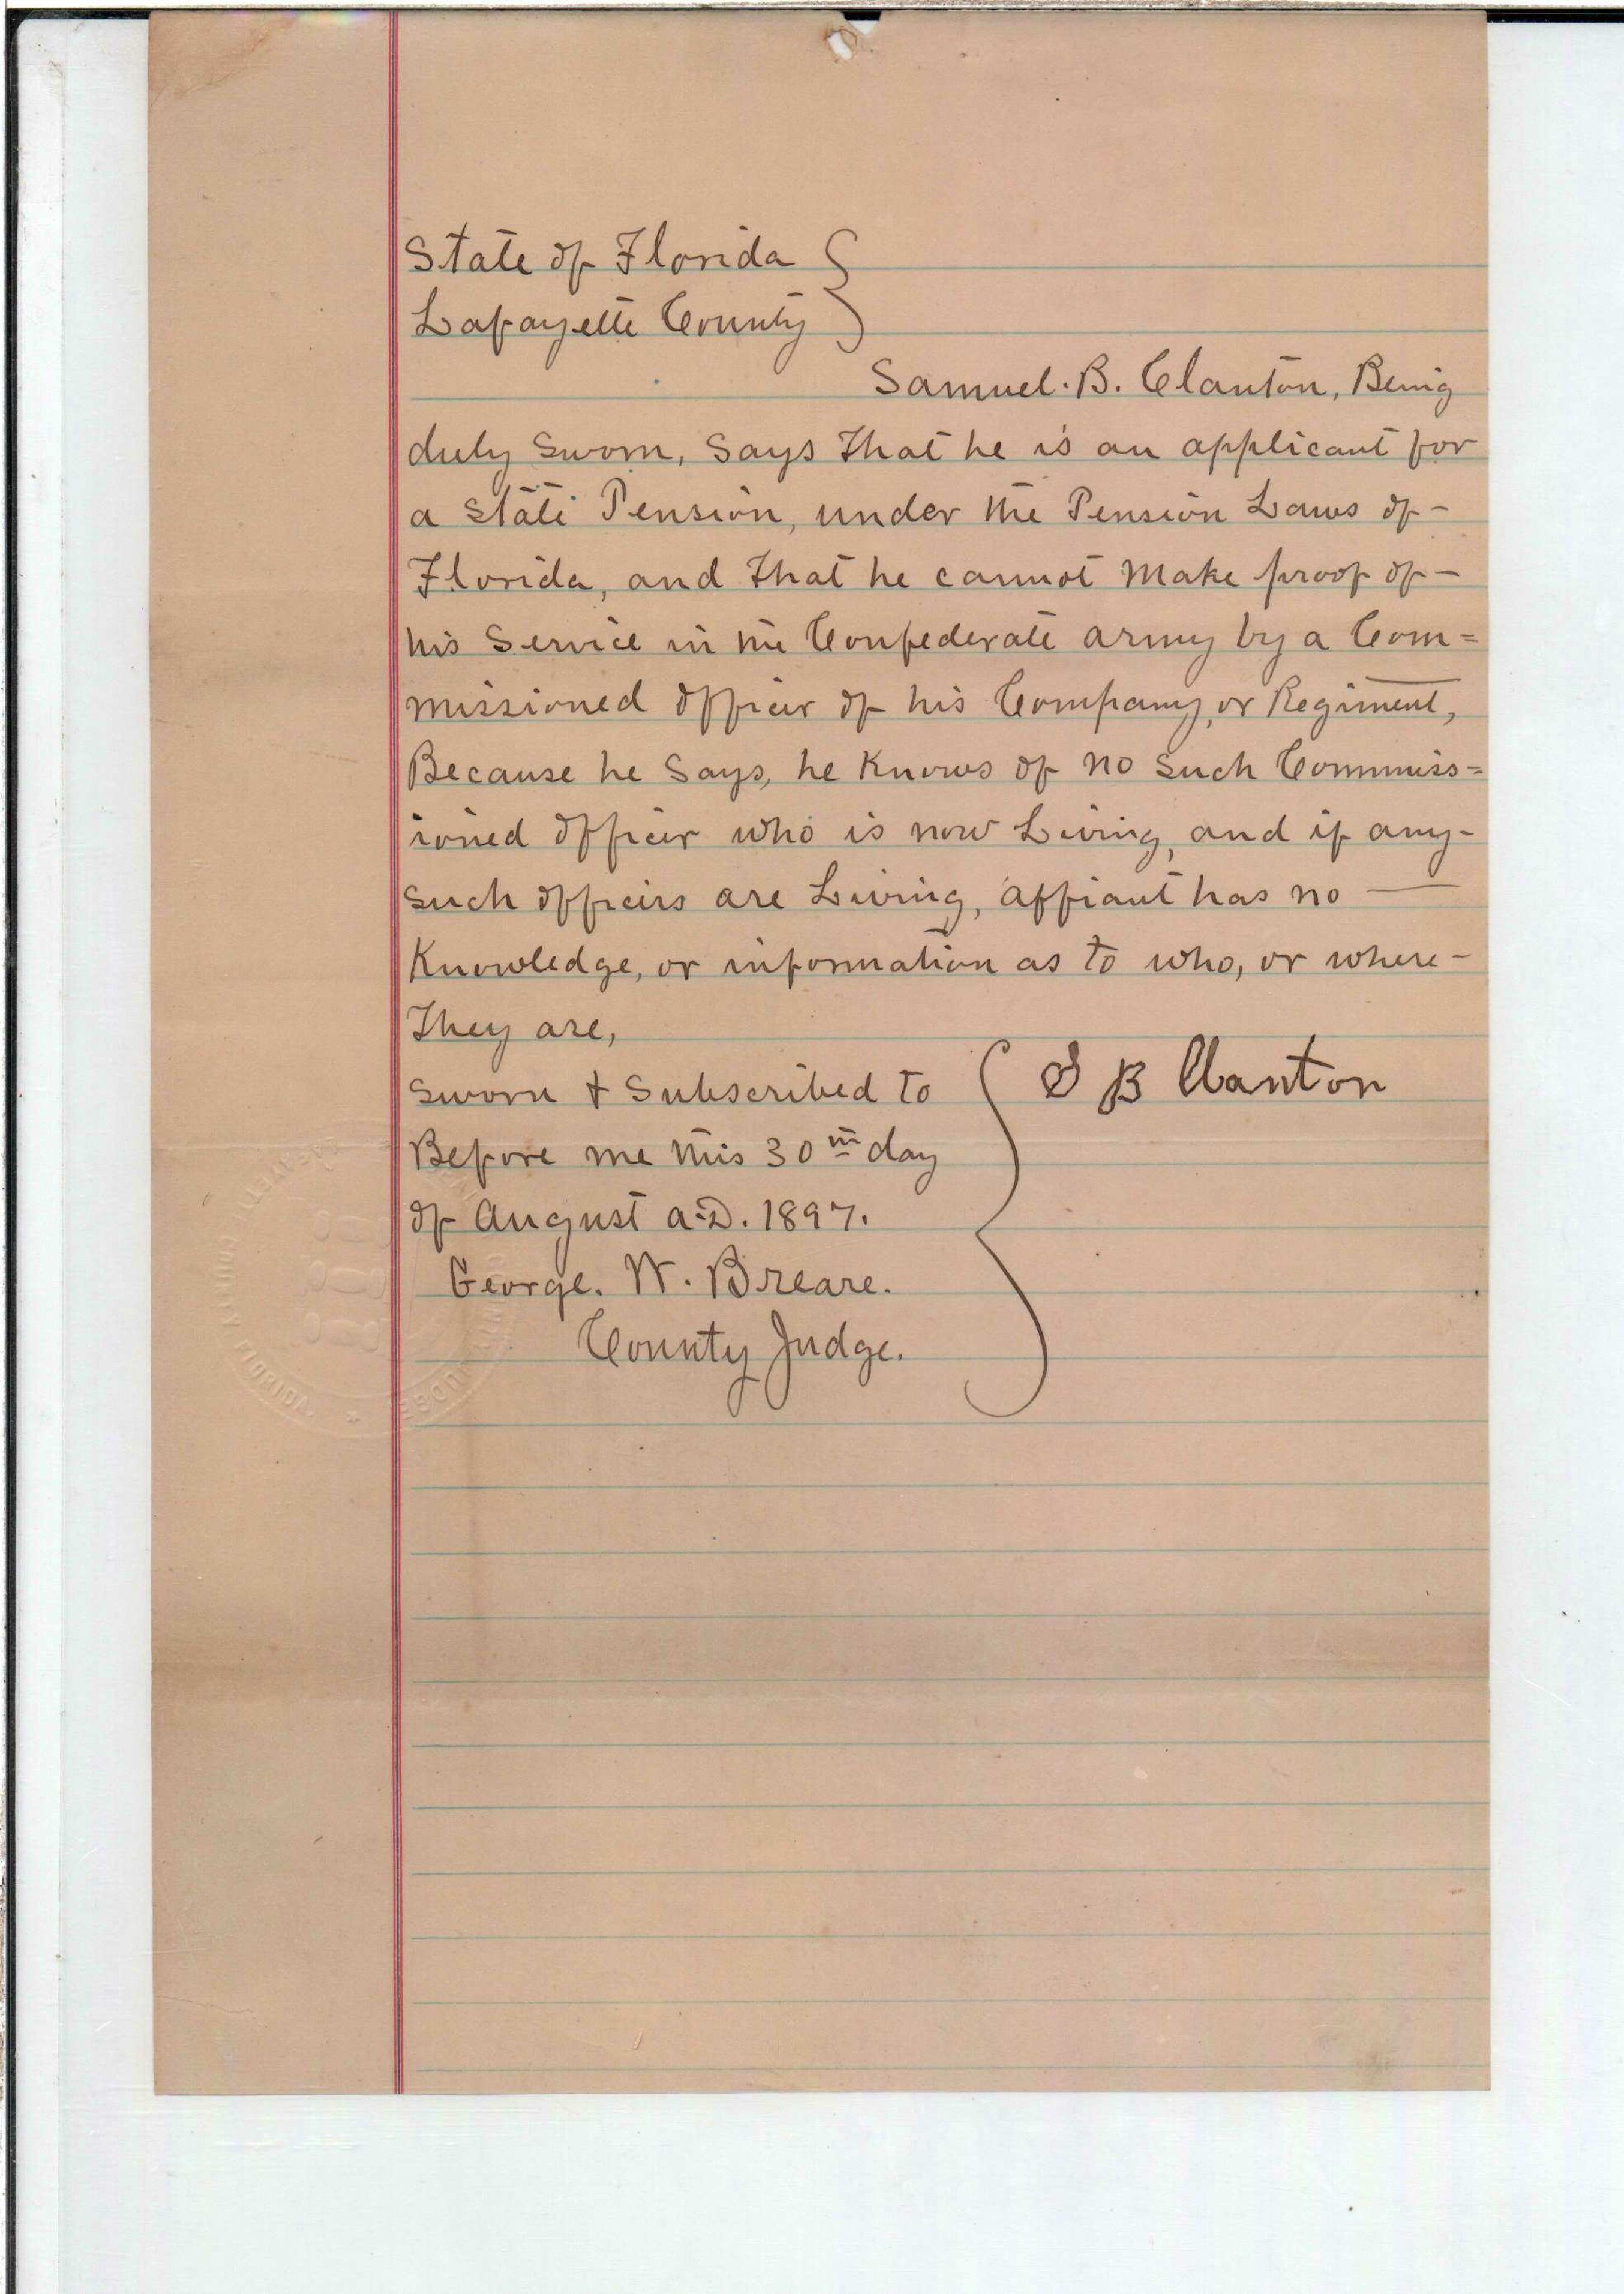 State of Florida
Lafayette County
Samuel. B. Clanton, Being
duly sworn, says that he is an applicant for
a state Pension, under the Pension Laws of -
Florida, and that he cannot make proof of -
his Service in the Confederate army by a Com=
missioned Officer of his Company, or Regiment,
Because he Says, he Knows of no such Commiss=
ioned officer who is now Living, and if any-
such officers are Living, affiant has no —
Knowledge, or information as to who, or where -
They are,
Sworn & Subscribed to
S B Clanton
Before me this 30th day
of August A.D. 1897.
George. W. Breare.
County Judge.
COUNTY FLORIDA.